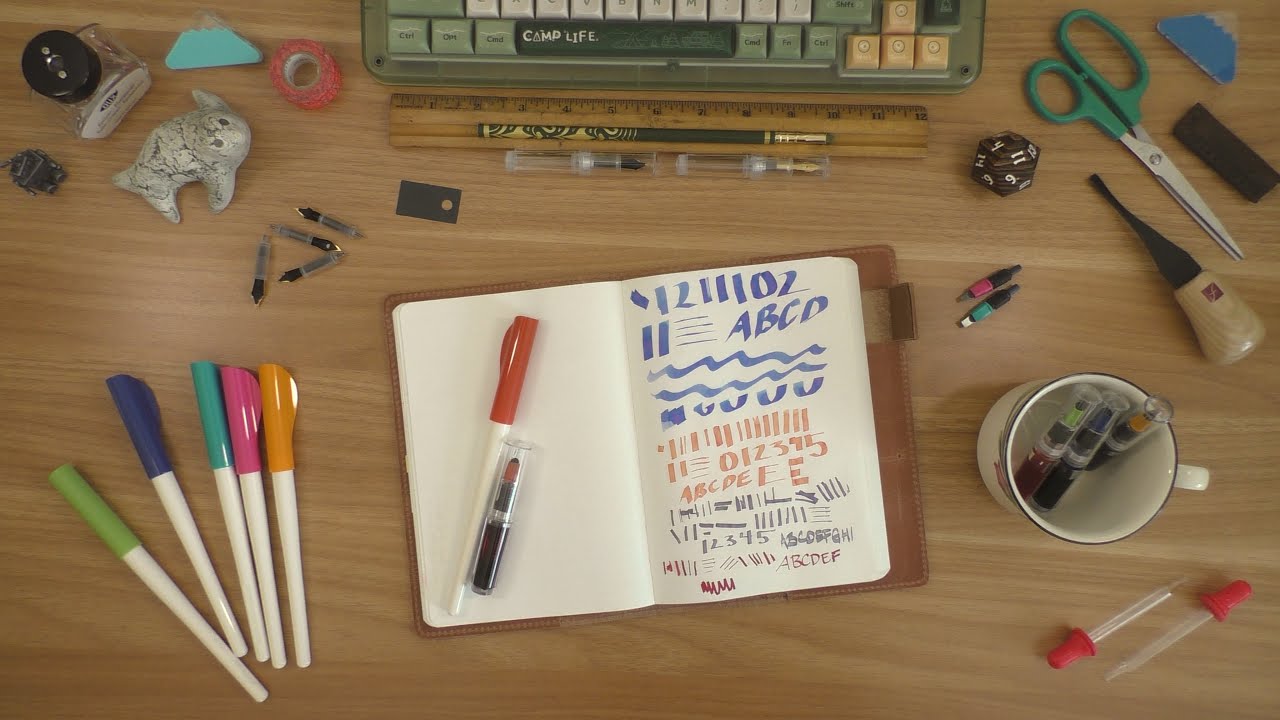 Shift
Ctrl
Opt
Cmd
CAMP LIFE.
Cmd
Fn
Ctrl
1 2 3 4 5 6 7 8 9 10 11 12
ABCD
012345
ABCDE E E
12345 ABCDEFGHI
ABCDEF